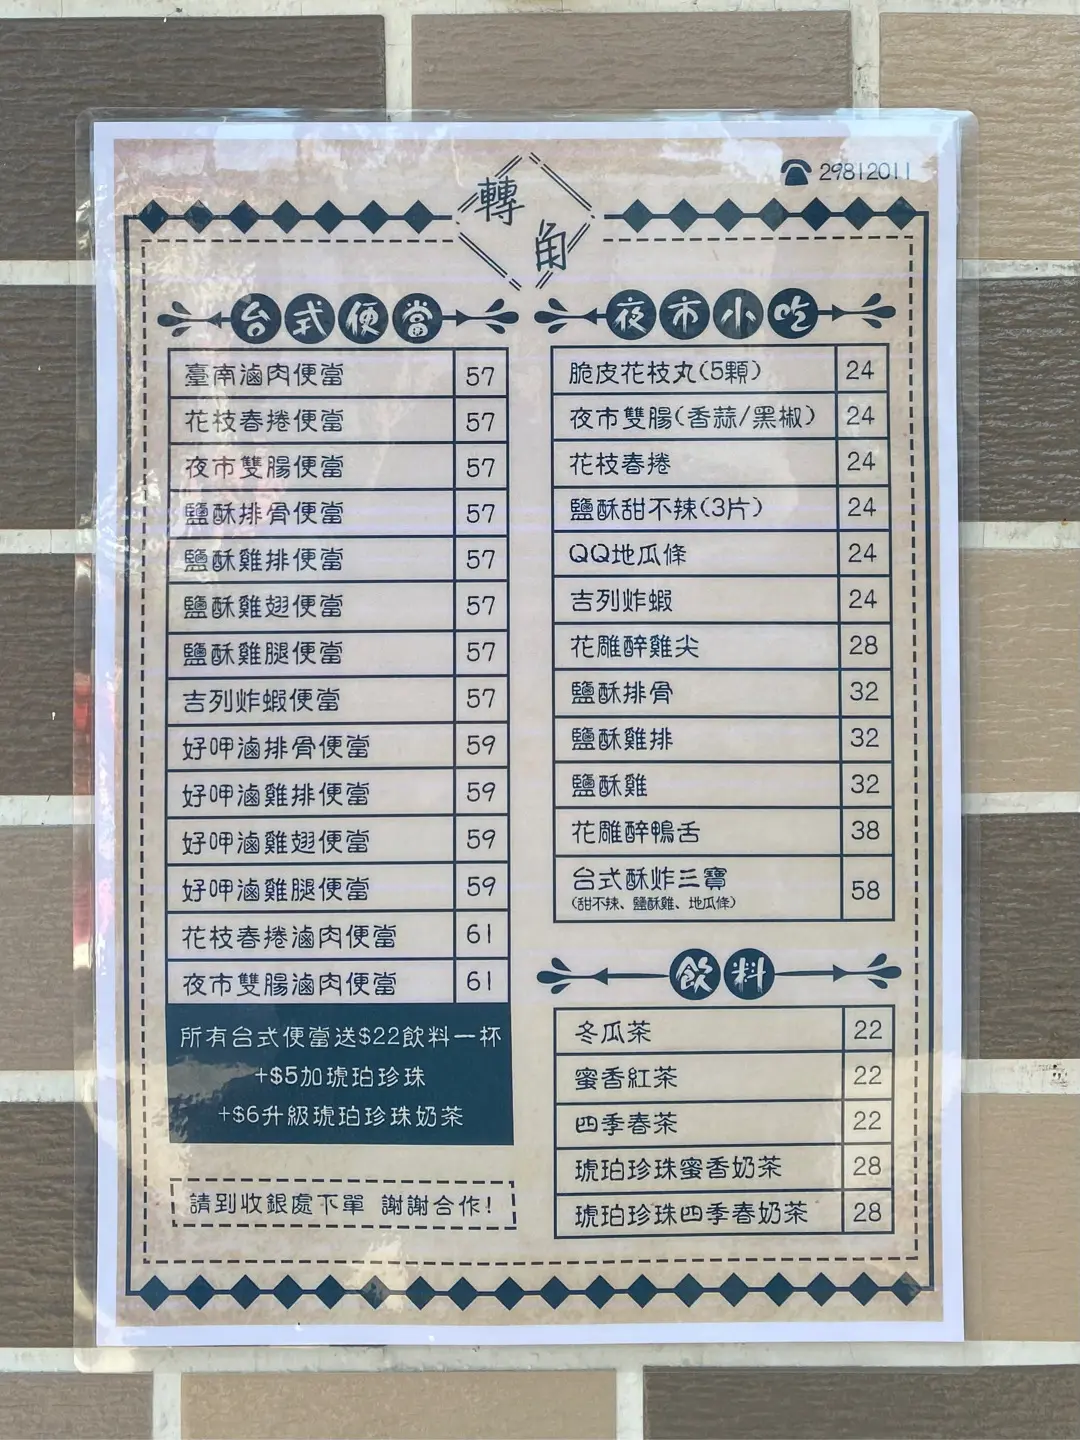 轉角
29812011
台式便當
臺南滷肉便當 57
花枝春捲便當 57
夜市雙腸便當 57
鹽酥排骨便當 57
鹽酥雞排便當 57
鹽酥雞翅便當 57
鹽酥雞腿便當 57
吉列炸蝦便當 57
好呷滷排骨便當 59
好呷滷雞排便當 59
好呷滷雞翅便當 59
好呷滷雞腿便當 59
花枝春捲滷肉便當 61
夜市雙腸滷肉便當 61
所有台式便當送$22飲料一杯
+$5加琥珀珍珠
+$6升級琥珀珍珠奶茶
請到收銀處下單 謝謝合作!
夜市小吃
脆皮花枝丸(5顆) 24
夜市雙腸(香蒜/黑椒) 24
花枝春捲 24
鹽酥甜不辣(3片) 24
QQ地瓜條 24
吉列炸蝦 24
花雕醉雞尖 28
鹽酥排骨 32
鹽酥雞排 32
鹽酥雞 32
花雕醉鴨舌 38
台式酥炸三寶 58
(甜不辣、鹽酥雞、地瓜條)
飲料
冬瓜茶 22
蜜香紅茶 22
四季春茶 22
琥珀珍珠蜜香奶茶 28
琥珀珍珠四季春奶茶 28